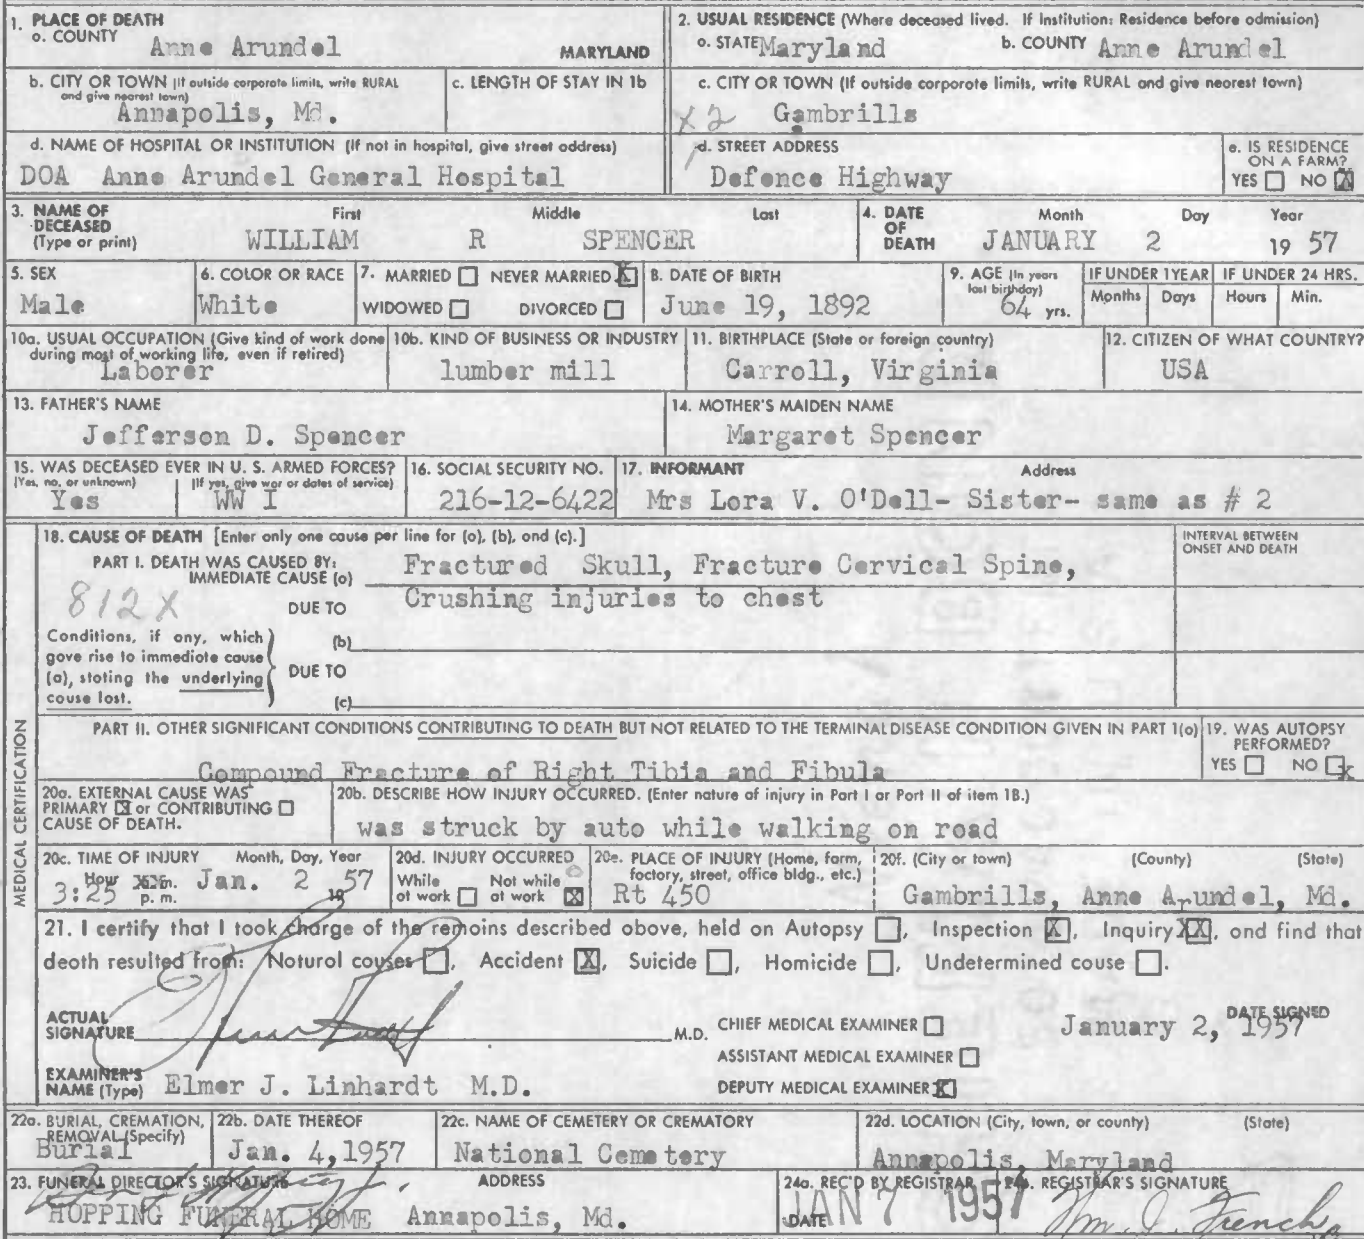 1. PLACE OF DEATH
a. COUNTY Anne Arundel MARYLAND
2. USUAL RESIDENCE (Where deceased lived. If Institution: Residence before admission)
a. STATE Maryland b. COUNTY Anne Arundel
b. CITY OR TOWN (If outside corporate limits, write RURAL and give nearest town)
Annapolis, Md.
c. LENGTH OF STAY IN 1b
c. CITY OR TOWN (If outside corporate limits, write RURAL and give nearest town)
X2 Gambrills
d. NAME OF HOSPITAL OR INSTITUTION (If not in hospital, give street address)
DOA Anne Arundel General Hospital
d. STREET ADDRESS
Defence Highway
e. IS RESIDENCE ON A FARM?
YES NO X
3. NAME OF DECEASED (Type or print)
First Middle Last
WILLIAM R SPENCER
4. DATE OF DEATH
Month Day Year
JANUARY 2 19 57
5. SEX
Male
6. COLOR OR RACE
White
7. MARRIED NEVER MARRIED X
WIDOWED DIVORCED
8. DATE OF BIRTH
June 19, 1892
9. AGE (In years last birthday)
64 yrs.
IF UNDER 1 YEAR
Months Days
IF UNDER 24 HRS.
Hours Min.
10a. USUAL OCCUPATION (Give kind of work done during most of working life, even if retired)
Laborer
10b. KIND OF BUSINESS OR INDUSTRY
lumber mill
11. BIRTHPLACE (State or foreign country)
Carroll, Virginia
12. CITIZEN OF WHAT COUNTRY?
USA
13. FATHER'S NAME
Jefferson D. Spencer
14. MOTHER'S MAIDEN NAME
Margaret Spencer
15. WAS DECEASED EVER IN U. S. ARMED FORCES?
(Yes, no, or unknown) (If yes, give war or dates of service)
Yes WW I
16. SOCIAL SECURITY NO.
216-12-6422
17. INFORMANT Address
Mrs Lora V. O'Dell- Sister- same as # 2
MEDICAL CERTIFICATION
18. CAUSE OF DEATH [Enter only one cause per line for (a), (b), and (c).]
INTERVAL BETWEEN ONSET AND DEATH
PART I. DEATH WAS CAUSED BY:
IMMEDIATE CAUSE (a) Fractured Skull, Fracture Cervical Spine,
812X DUE TO Crushing injuries to chest
Conditions, if any, which gave rise to immediate cause (a), stating the underlying cause last.
(b)
DUE TO
(c)
PART II. OTHER SIGNIFICANT CONDITIONS CONTRIBUTING TO DEATH BUT NOT RELATED TO THE TERMINAL DISEASE CONDITION GIVEN IN PART 1(a)
Compound Fracture of Right Tibia and Fibula
19. WAS AUTOPSY PERFORMED?
YES NO X
20a. EXTERNAL CAUSE WAS PRIMARY X or CONTRIBUTING CAUSE OF DEATH.
20b. DESCRIBE HOW INJURY OCCURRED. (Enter nature of injury in Part I or Part II of item 18.)
was struck by auto while walking on road
20c. TIME OF INJURY Month, Day, Year
Hour
3:25 p. m. Jan. 2 57
19
20d. INJURY OCCURRED
While at work Not while at work X
20e. PLACE OF INJURY (Home, farm, factory, street, office bldg., etc.)
Rt 450
20f. (City or town) (County) (State)
Gambrills, Anne Arundel, Md.
21. I certify that I took charge of the remains described above, held on Autopsy , Inspection X, Inquiry XX, and find that
death resulted from: Natural causes , Accident X, Suicide , Homicide , Undetermined cause .
ACTUAL SIGNATURE M.D.
CHIEF MEDICAL EXAMINER
ASSISTANT MEDICAL EXAMINER
DEPUTY MEDICAL EXAMINER X
DATE SIGNED
January 2, 1957
EXAMINER'S NAME (Type) Elmer J. Linhardt M.D.
22a. BURIAL, CREMATION, REMOVAL (Specify)
Burial
22b. DATE THEREOF
Jan. 4, 1957
22c. NAME OF CEMETERY OR CREMATORY
National Cemetery
22d. LOCATION (City, town, or county) (State)
Annapolis, Maryland
23. FUNERAL DIRECTOR'S SIGNATURE ADDRESS
HOPPING FUNERAL HOME Annapolis, Md.
24a. REC'D BY REGISTRAR
DATE JAN 7 1957
24b. REGISTRAR'S SIGNATURE
Wm. J. French